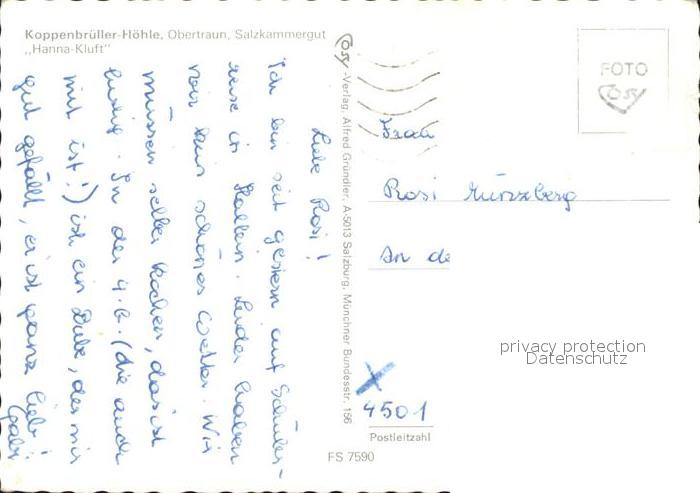 Koppenbrüller-Höhle, Obertraun, Salzkammergut
„Hanna-Kluft"
Liebe Rosi!
Ich bin seit gestern auf Schüler-
reise in Hallein. Leider haben
wir kein schönes Wetter. Wir
müssen selber kochen, das ist
lustig. In der 4.b. (die auch
mit ist!) ist ein Bube, der mir
gut gefällt, er ist ganz lieb!
Gabi
Cosy-Verlag, Alfred Gründler, A-5013 Salzburg, Münchner Bundesstr. 156
FOTO
Cosy
Frau
Rosi Mürzberg
An de
privacy protection
Datenschutz
4501
Postleitzahl
FS 7590